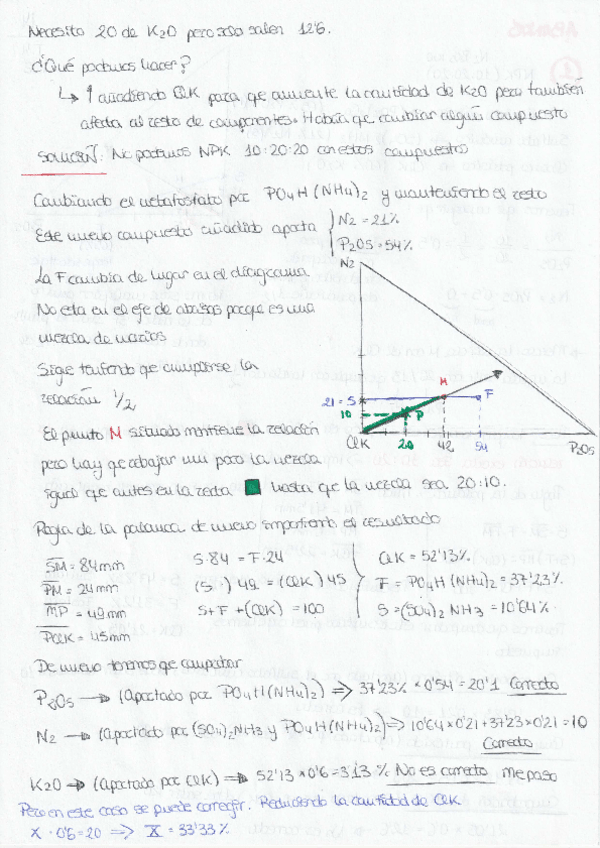 Necesito 20 de K2O pero solo salen 12'6.
¿Qué podemos hacer?
↳ ↑ añadiendo ClK para qe aumente la cantidad de K2O pero también
afecta al resto de componentes. Habría qe cambiar algún compuesto
SOLUCIÓN: No podemos NPK 10:20:20 con estos compuestos
Cambiando el metafosfato por PO4H(NH4)2 y manteniendo el resto
Este nuevo compuesto añadido aporta { N2 = 21%
P2O5 = 54%
La F cambia de lugar en el diagrama
No esta en el eje de abcisas porque es una
mezcla de varios
Sigue teniendo qe cumplirse la
relación 1/2
El punto M situado mantiene la relación
pero hay qe rebajar un poco la mezcla
igual qe antes en la recta hasta que la mezcla sea 20:10.
N2
21 = S
10
M
F
P
ClK
20
42
54
P2O5
Regla de la palanca de nuevo
SM = 84mm
PM = 24mm
MP = 49mm
PClK = 45mm
S·84 = F·24
(S+ ) 49 = (ClK) 45
S+F+(ClK) = 100
ClK = 52'13%
F = PO4H(NH4)2 = 37'23%
S = (SO4)2NH3 = 10'64%
De nuevo tenemos qe comprobar
P2O5 → (Aportado por PO4H(NH4)2) ⇒ 37'23% × 0'54 = 20'1 Correcto
N2 → (Aportado por (SO4)2NH3 y PO4H(NH4)2) ⇒ 10'64×0'21+37'23×0'21=10
Correcto
K2O → (Aportado por ClK) ⇒ 52'13 × 0'6 = 31'3 % No es correcto me paso
Pero en este caso se puede corregir. Reduciendo la cantidad de ClK
X · 0'6 = 20 ⇒ X = 33'33%